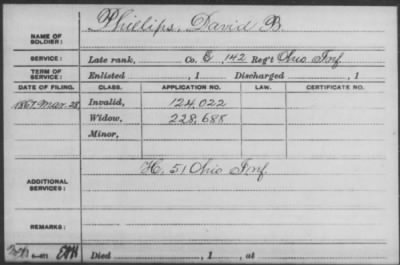 Phillips, David B.
NAME OF SOLDIER:
SERVICE: Late rank, Co. G, 142 Reg't Ohio Inf.
TERM OF SERVICE: Enlisted , 1 Discharged , 1
DATE OF FILING. CLASS. APPLICATION NO. LAW. CERTIFICATE NO.
1867 Mar. 28 Invalid, 124,022
Widow, 228,688
Minor,
ADDITIONAL SERVICES: H. 51 Ohio Inf.
REMARKS:
Died , 1 , at